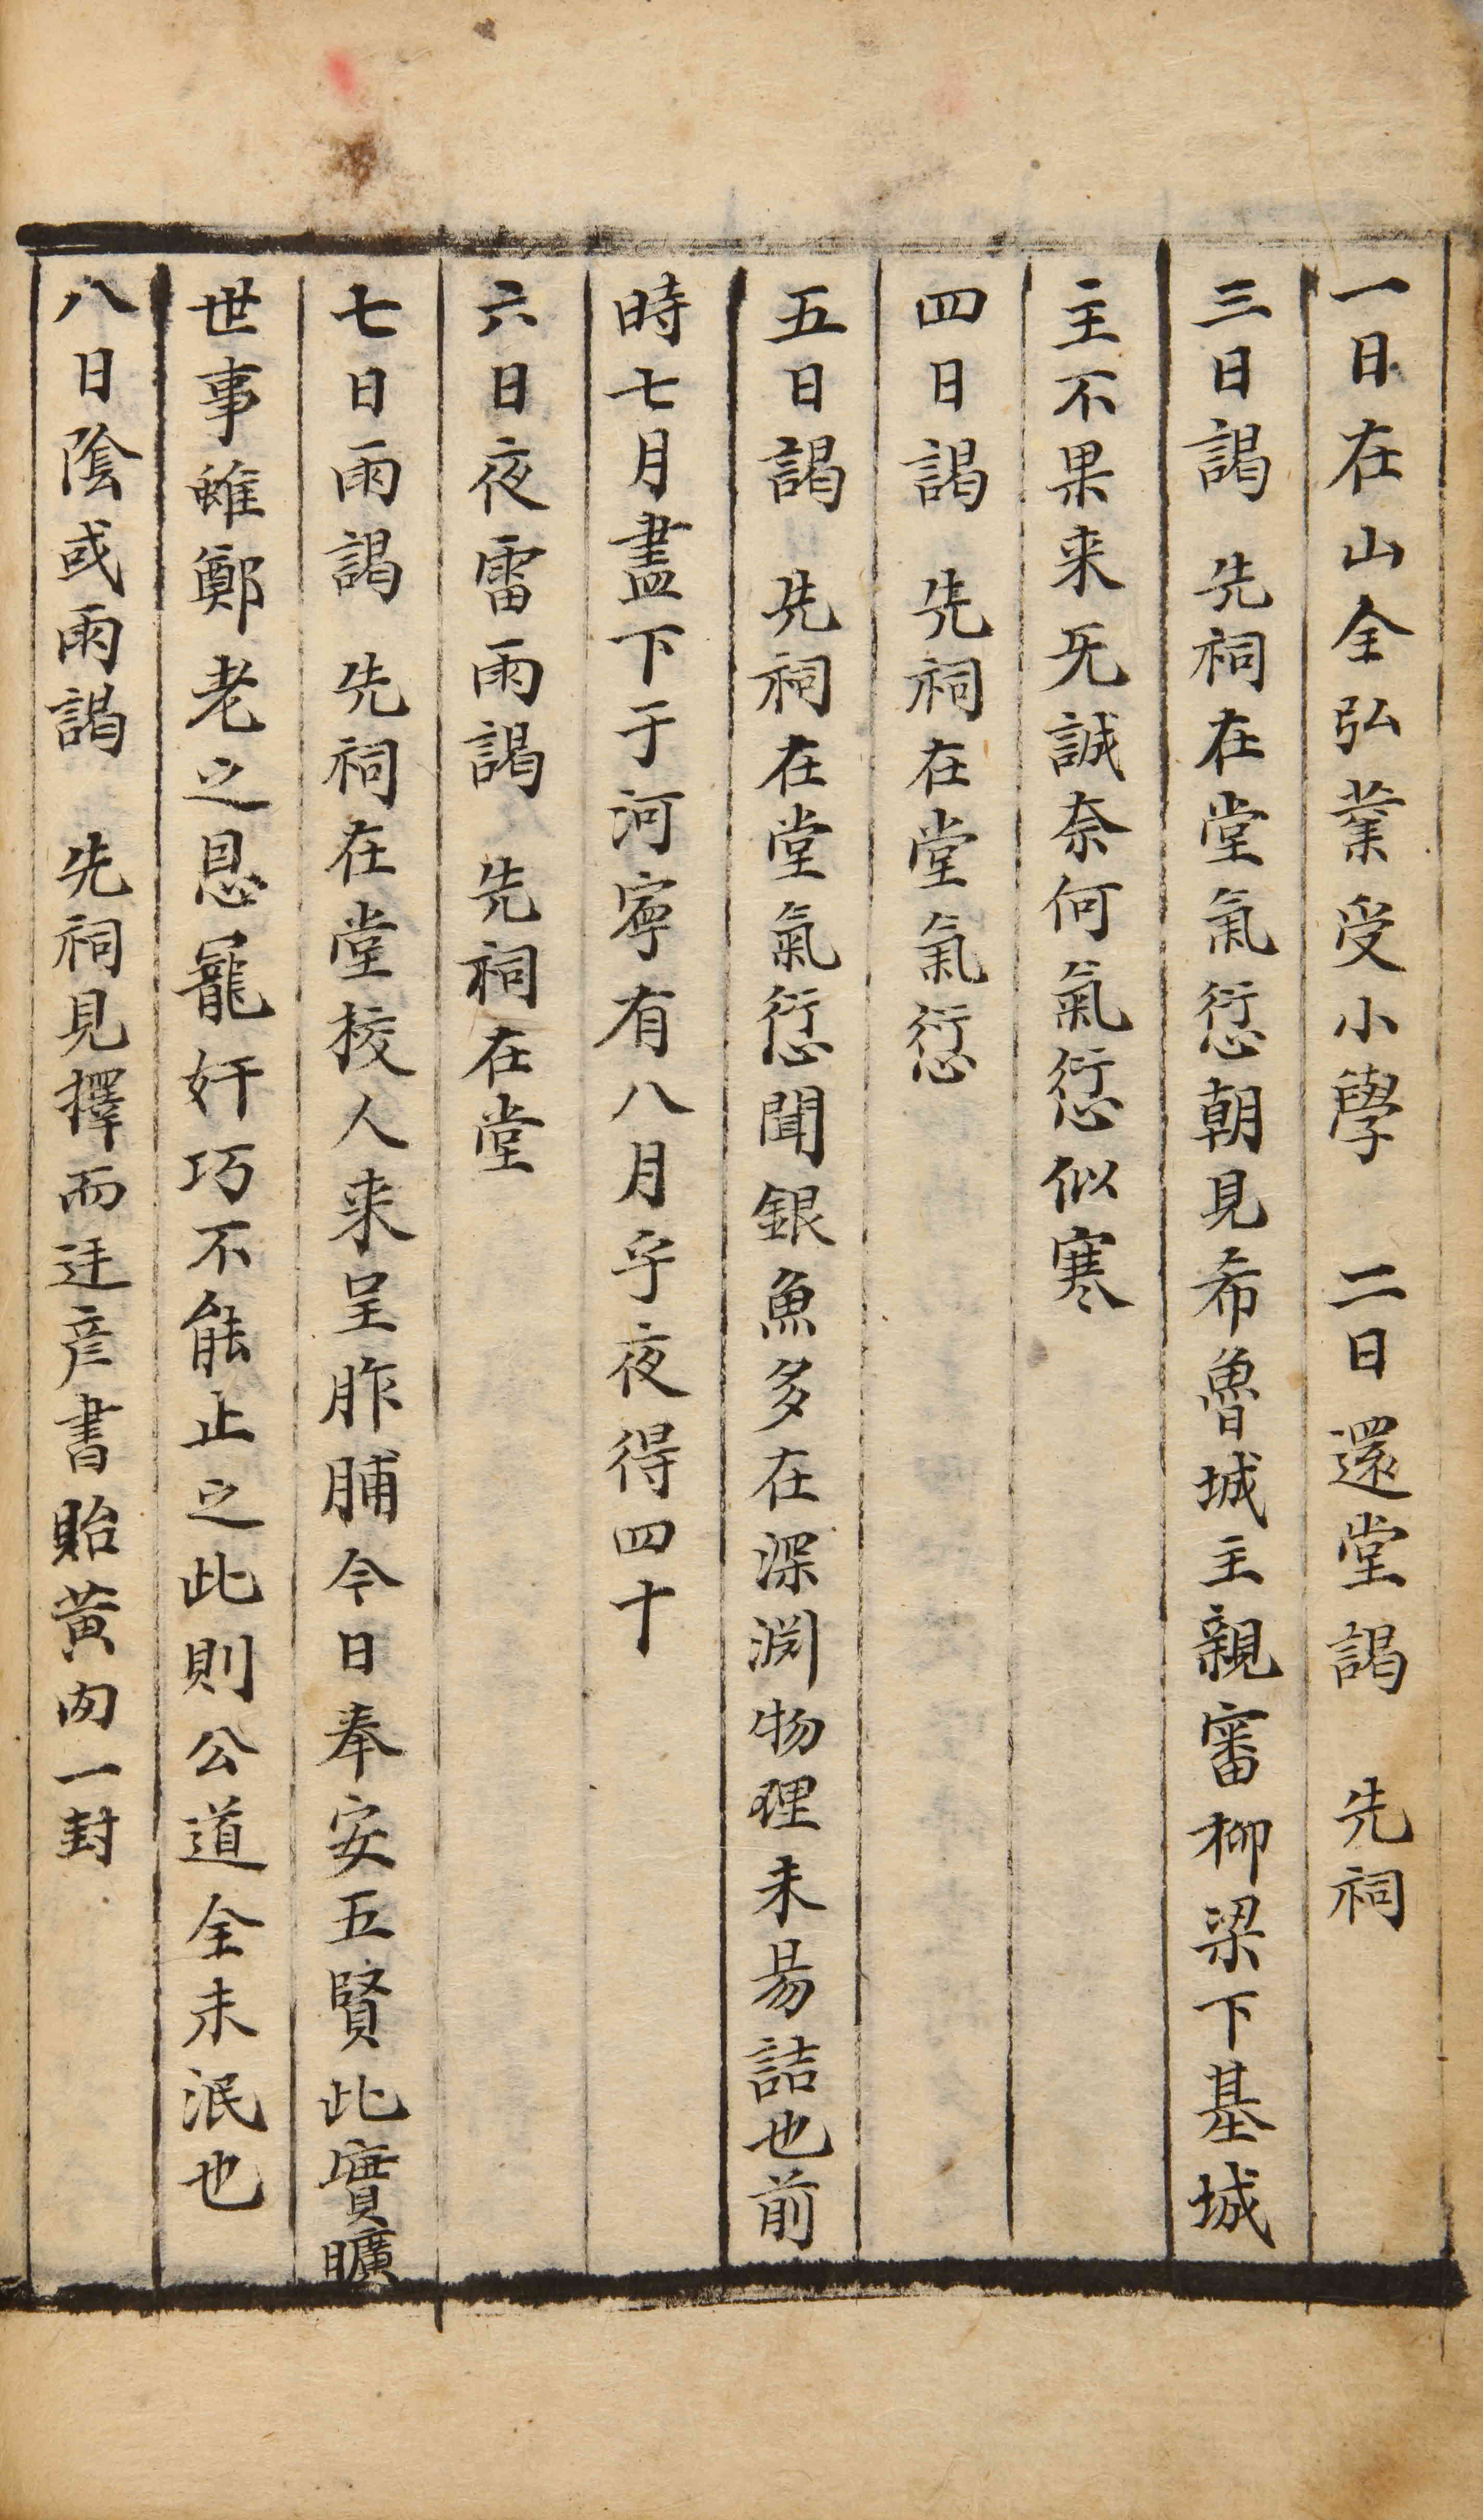 一日在山全弘業受小學 二日還堂謁 先祠
三日謁 先祠在堂氣愆朝見希魯城主親審柳梁下基城
主不果来旡誠奈何氣愆似寒
四日謁 先祠在堂氣愆
五日謁 先祠在堂氣愆聞銀魚多在深渊物理未易詰也前
時七月盡下于河寧有八月乎夜得四十
六日夜雷雨謁 先祠在堂
七日雨謁 先祠在堂校人来呈胙脯今日奉安五賢此實曠
世事雖鄭老之恩寵奸巧不能止之此則公道全未泯也
八日陰或雨謁 先祠見擇而迋彦書貽黄肉一封